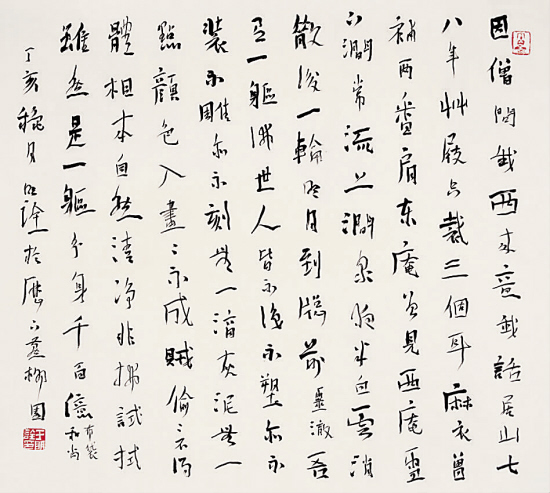 因僧問我西來意我話居山七
八年艸履只裁三個耳麻衣曾
補兩番肩東庵每見西庵雪
下澗常流上澗泉夜半白雲消
散後一輪明月到窗前靈澈吾
有一軀佛世人皆不識不塑亦不
裝不雕亦不刻無一滴灰泥無一
點顏色人畫〻不成賊偷〻不得
體相本自然清淨非拂試拭
雖然是一軀分身千百億布袋和尚
丁亥穐月詮於歷下柳園